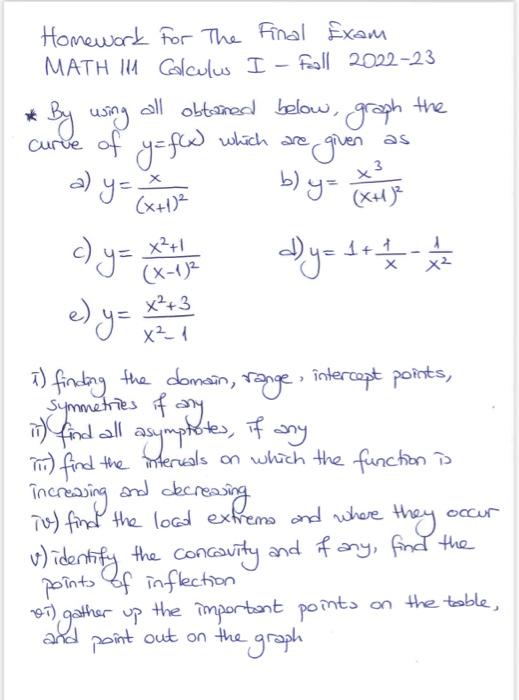 Homework For The Final Exam
MATH 111 Calculus I - Fall 2022-23
* By using all obtained below, graph the
curve of y=f(x) which are given as
a) y= x/(x+1)² b) y= x³/(x+1)²
c) y= x²+1/(x-1)² d) y= 1+1/x-1/x²
e) y= x²+3/x²-1
i) finding the domain, range, intercept points,
symmetries if any
ii) find all asymptotes, if any
iii) find the intervals on which the function is
increasing and decreasing
iv) find the local extrema and where they occur
v) identify the concavity and if any, find the
points of inflection
vi) gather up the important points on the table,
and point out on the graph